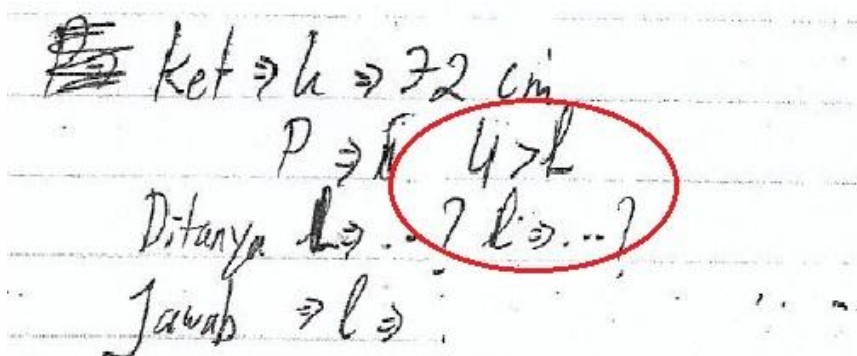 Ket ⇒ k ⇒ 72 cm
P ⇒ 4 > l
Ditanya L ⇒ ...? l ⇒ ...?
Jawab ⇒ l ⇒